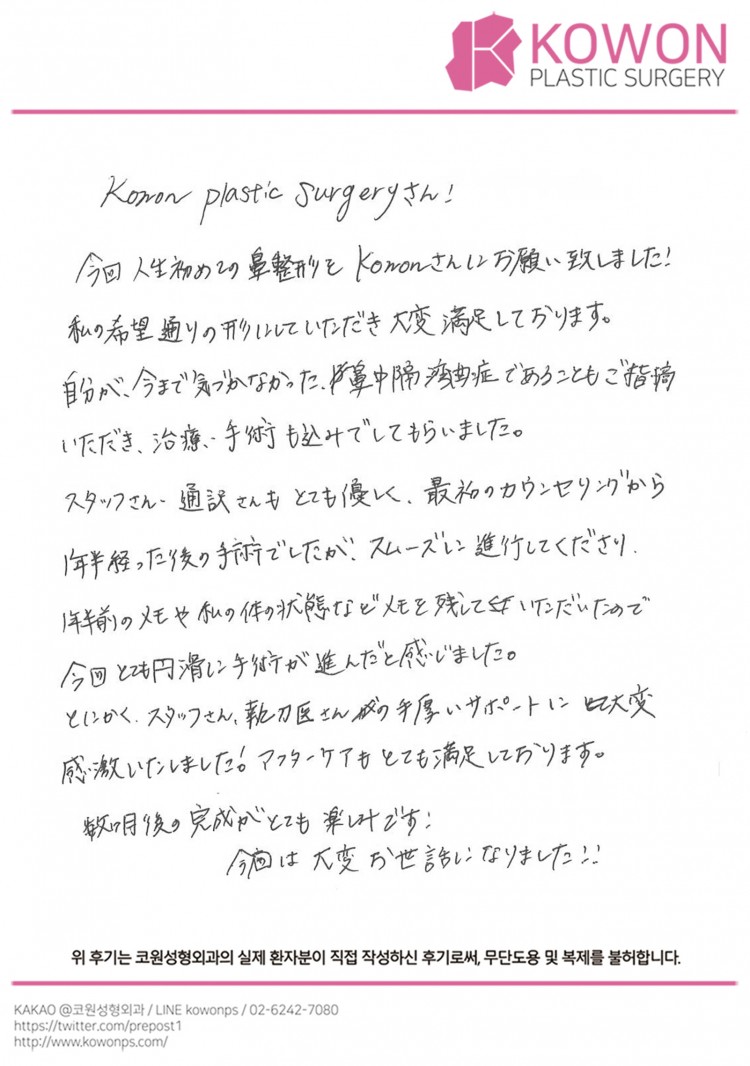 KOWON
PLASTIC SURGERY
Kowon plastic surgeryさん!
今回 人生初めての鼻整形を Kowonさんにお願い致しました!
私の希望通りの形にしていただき 大変 満足しております。
自分が、今まで気づかなかった、鼻中隔湾曲症であることもご指摘
いただき、治療・手術も込みでしてもらいました。
スタッフさん・通訳さんも とても優しく、最初のカウンセリングから
1年半経った後の手術でしたが、スムーズに進行してくださり、
1年半前のメモや 私の体の状態などメモを残していただいたので
今回 とても円滑に手術が進んだと感じました。
とにかく、スタッフさん、執刀医さんの手厚いサポートに 大変
感激いたしました! アフターケアも とても満足しております。
数ヶ月後の完成がとても 楽しみです!
今回は 大変 お世話になりました!!
위 후기는 코원성형외과의 실제 환자분이 직접 작성하신 후기로써, 무단도용 및 복제를 불허합니다.
KAKAO @코원성형외과 / LINE kowonps / 02-6242-7080
https://twitter.com/prepost1
http://www.kowonps.com/